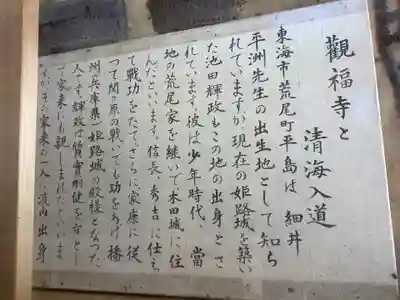 觀福寺と
清海入道
東海市荒尾町平島は、細井
平洲先生の出生地として知ら
れていますが、現在の姫路城を築い
た池田輝政もこの地の出身とさ
れています。彼は少年時代、當
地の荒尾家を継いで木田城に住
んだといいます。信長、秀吉に仕え
て戦功をたて、さらに家康に従
つて関ヶ原の戦いでも功をあげ播
州(兵庫県)姫路城の殿様となった
人です。輝政は質實剛健を旨とし
て家来にも親しまれたといいま
す。その家来の一人に渡内出身